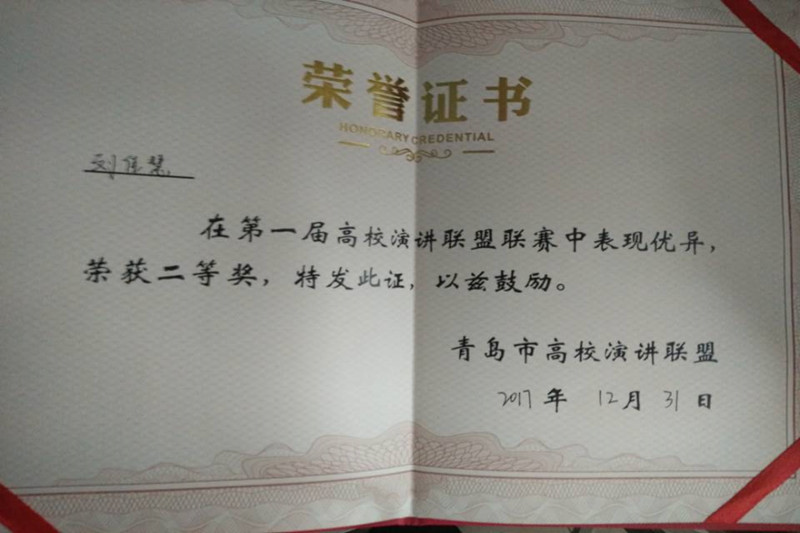 荣誉证书
HONORARY CREDENTIAL
刘佳慧
在第一届高校演讲联盟联赛中表现优异，
荣获二等奖，特发此证，以兹鼓励。
青岛市高校演讲联盟
2017年 12月 31日